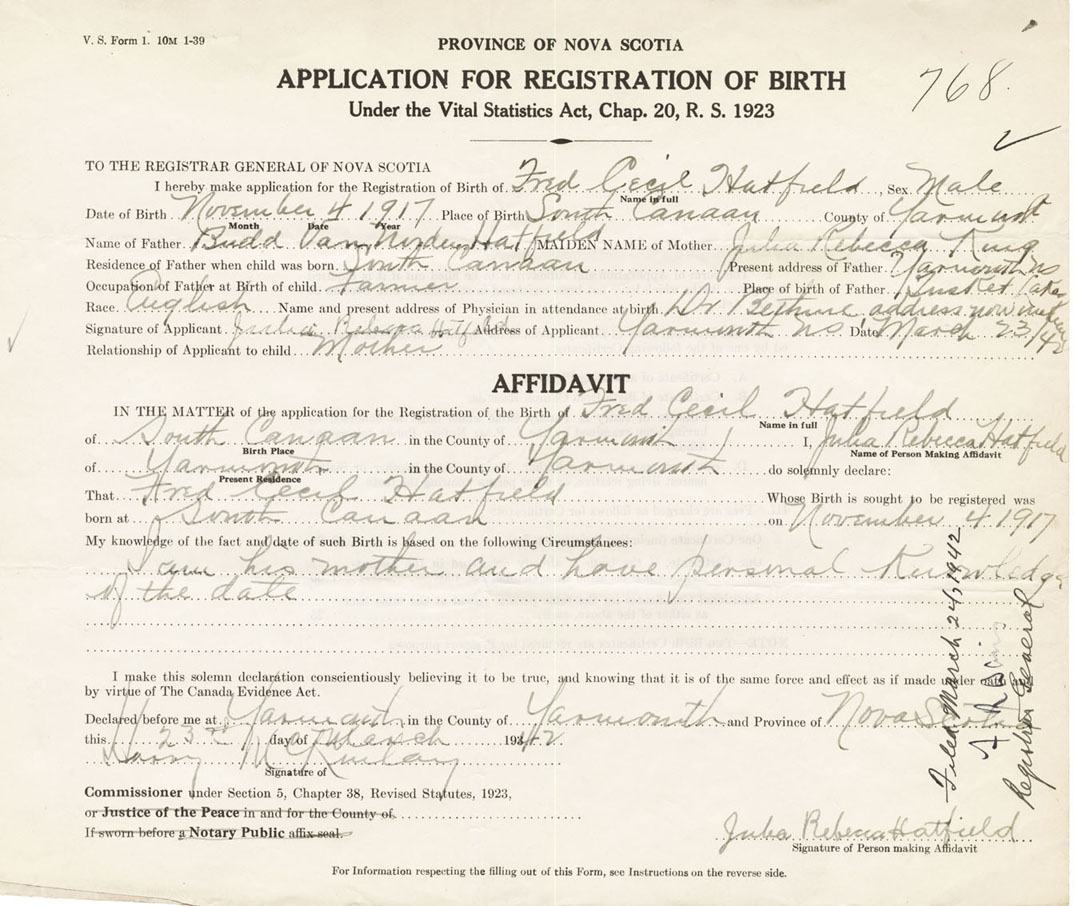 V. S. Form 1. 10M 1-39
PROVINCE OF NOVA SCOTIA
APPLICATION FOR REGISTRATION OF BIRTH
768.
Under the Vital Statistics Act, Chap. 20, R. S. 1923
TO THE REGISTRAR GENERAL OF NOVA SCOTIA
I hereby make application for the Registration of Birth of Fred Cecil Hatfield, Sex Male
Name in full
Date of Birth November 4 1917 Place of Birth South Canaan County of Yarmouth
Month Date Year
Name of Father Budd Van Norden Hatfield MAIDEN NAME of Mother Julia Rebecca King
Residence of Father when child was born South Canaan Present address of Father Yarmouth NS
Occupation of Father at Birth of child Farmer Place of birth of Father Tusket Lakes
Race English Name and present address of Physician in attendance at birth Dr Bethune address now
Signature of Applicant Julia Rebecca Hatfield Address of Applicant Yarmouth N.S. Date March 23/42
Relationship of Applicant to child Mother
AFFIDAVIT
IN THE MATTER of the application for the Registration of the Birth of Fred Cecil Hatfield
Name in full
of South Canaan in the County of Yarmouth I, Julia Rebecca Hatfield
Birth Place Name of Person Making Affidavit
of Yarmouth in the County of Yarmouth do solemnly declare:
Present Residence
That Fred Cecil Hatfield Whose Birth is sought to be registered was
born at South Canaan on November 4 1917
My knowledge of the fact and date of such Birth is based on the following Circumstances:
I am his mother and have personal Knowledge
of the date
I make this solemn declaration conscientiously believing it to be true, and knowing that it is of the same force and effect as if made under oath
by virtue of The Canada Evidence Act.
Declared before me at Yarmouth in the County of Yarmouth and Province of Nova Scotia
this 23rd day of March 1942
Harry
Signature of
Commissioner under Section 5, Chapter 38, Revised Statutes, 1923,
or Justice of the Peace in and for the County of
If sworn before a Notary Public affix seal.
Julia Rebecca Hatfield
Signature of Person making Affidavit
For Information respecting the filling out of this Form, see Instructions on the reverse side.
Filed March 24, 1942
Registrar General